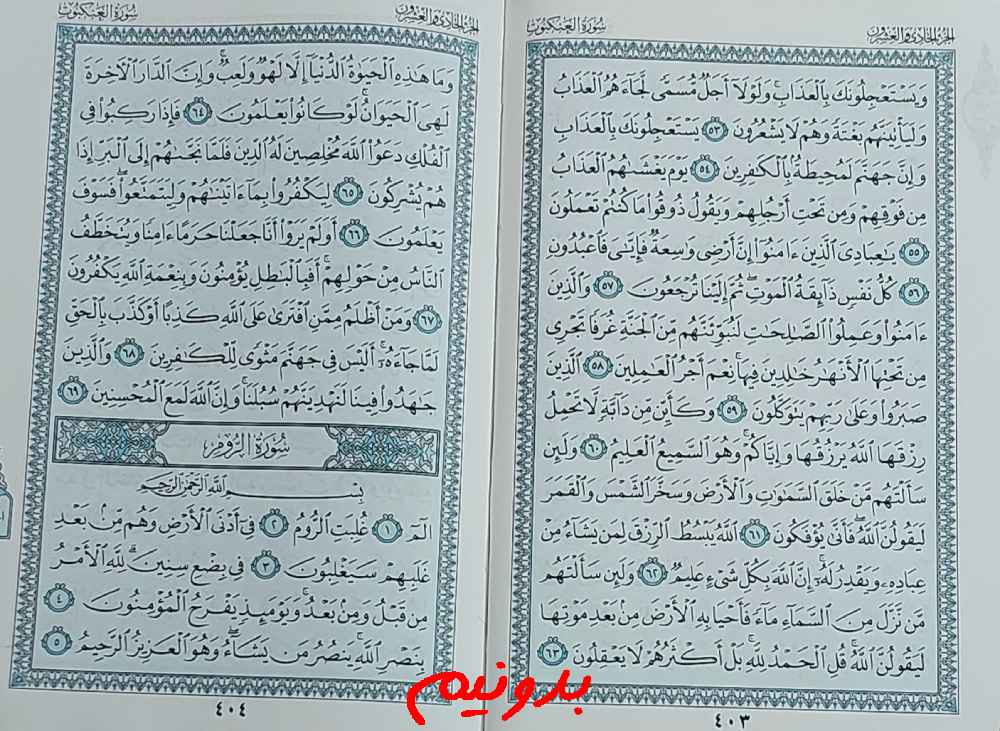 الجزء الحادي والعشرون
سورة العنكبوت
وَيَسْتَعْجِلُونَكَ بِالْعَذَابِ وَلَوْلَا أَجَلٌ مُّسَمًّى لَّجَاءَهُمُ الْعَذَابُ
وَلَيَأْتِيَنَّهُم بَغْتَةً وَهُمْ لَا يَشْعُرُونَ ٥٣ يَسْتَعْجِلُونَكَ بِالْعَذَابِ
وَإِنَّ جَهَنَّمَ لَمُحِيطَةٌ بِالْكَافِرِينَ ٥٤ يَوْمَ يَغْشَاهُمُ الْعَذَابُ
مِن فَوْقِهِمْ وَمِن تَحْتِ أَرْجُلِهِمْ وَيَقُولُ ذُوقُوا مَا كُنتُمْ تَعْمَلُونَ
٥٥ يَاعِبَادِيَ الَّذِينَ ءَامَنُوا إِنَّ أَرْضِي وَاسِعَةٌ فَإِيَّايَ فَاعْبُدُونِ
٥٦ كُلُّ نَفْسٍ ذَائِقَةُ الْمَوْتِ ثُمَّ إِلَيْنَا تُرْجَعُونَ ٥٧ وَالَّذِينَ
ءَامَنُوا وَعَمِلُوا الصَّالِحَاتِ لَنُبَوِّئَنَّهُم مِّنَ الْجَنَّةِ غُرَفًا تَجْرِي
مِن تَحْتِهَا الْأَنْهَارُ خَالِدِينَ فِيهَا نِعْمَ أَجْرُ الْعَامِلِينَ ٥٨ الَّذِينَ
صَبَرُوا وَعَلَى رَبِّهِمْ يَتَوَكَّلُونَ ٥٩ وَكَأَيِّن مِّن دَابَّةٍ لَّا تَحْمِلُ
رِزْقَهَا اللَّهُ يَرْزُقُهَا وَإِيَّاكُمْ وَهُوَ السَّمِيعُ الْعَلِيمُ ٦٠ وَلَئِن
سَأَلْتَهُم مَّنْ خَلَقَ السَّمَاوَاتِ وَالْأَرْضَ وَسَخَّرَ الشَّمْسَ وَالْقَمَرَ
لَيَقُولُنَّ اللَّهُ فَأَنَّى يُؤْفَكُونَ ٦١ اللَّهُ يَبْسُطُ الرِّزْقَ لِمَن يَشَاءُ مِنْ
عِبَادِهِ وَيَقْدِرُ لَهُ إِنَّ اللَّهَ بِكُلِّ شَيْءٍ عَلِيمٌ ٦٢ وَلَئِن سَأَلْتَهُم
مَّن نَّزَّلَ مِنَ السَّمَاءِ مَاءً فَأَحْيَا بِهِ الْأَرْضَ مِن بَعْدِ مَوْتِهَا
لَيَقُولُنَّ اللَّهُ قُلِ الْحَمْدُ لِلَّهِ بَلْ أَكْثَرُهُمْ لَا يَعْقِلُونَ ٦٣
٤٠٣
الجزء الحادي والعشرون
سورة العنكبوت
وَمَا هَذِهِ الْحَيَوٰةُ الدُّنْيَا إِلَّا لَهْوٌ وَلَعِبٌ وَإِنَّ الدَّارَ الْآخِرَةَ
لَهِيَ الْحَيَوَانُ لَوْ كَانُوا يَعْلَمُونَ ٦٤ فَإِذَا رَكِبُوا فِي
الْفُلْكِ دَعَوُا اللَّهَ مُخْلِصِينَ لَهُ الدِّينَ فَلَمَّا نَجَّاهُمْ إِلَى الْبَرِّ إِذَا
هُمْ يُشْرِكُونَ ٦٥ لِيَكْفُرُوا بِمَا ءَاتَيْنَاهُمْ وَلِيَتَمَتَّعُوا فَسَوْفَ
يَعْلَمُونَ ٦٦ أَوَلَمْ يَرَوْا أَنَّا جَعَلْنَا حَرَمًا ءَامِنًا وَيُتَخَطَّفُ
النَّاسُ مِنْ حَوْلِهِمْ أَفَبِالْبَاطِلِ يُؤْمِنُونَ وَبِنِعْمَةِ اللَّهِ يَكْفُرُونَ
٦٧ وَمَنْ أَظْلَمُ مِمَّنِ افْتَرَى عَلَى اللَّهِ كَذِبًا أَوْ كَذَّبَ بِالْحَقِّ
لَمَّا جَاءَهُ أَلَيْسَ فِي جَهَنَّمَ مَثْوًى لِّلْكَافِرِينَ ٦٨ وَالَّذِينَ
جَاهَدُوا فِينَا لَنَهْدِيَنَّهُمْ سُبُلَنَا وَإِنَّ اللَّهَ لَمَعَ الْمُحْسِنِينَ ٦٩
سُورَةُ الرُّومِ
بِسْمِ اللَّهِ الرَّحْمَٰنِ الرَّحِيمِ
الٓمٓ ١ غُلِبَتِ الرُّومُ ٢ فِي أَدْنَى الْأَرْضِ وَهُم مِّن بَعْدِ
غَلَبِهِمْ سَيَغْلِبُونَ ٣ فِي بِضْعِ سِنِينَ لِلَّهِ الْأَمْرُ
مِن قَبْلُ وَمِن بَعْدُ وَيَوْمَئِذٍ يَفْرَحُ الْمُؤْمِنُونَ ٤
بِنَصْرِ اللَّهِ يَنصُرُ مَن يَشَاءُ وَهُوَ الْعَزِيزُ الرَّحِيمُ ٥
٤٠٤
بدونیم